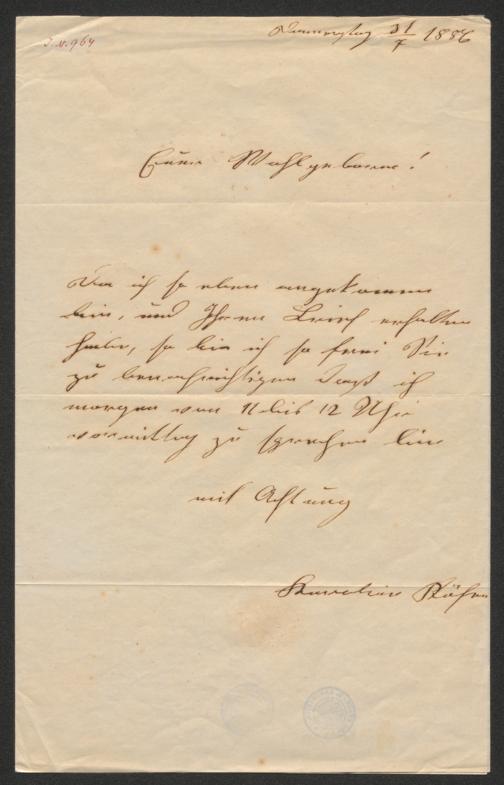 I.N.964
Donnerstag 31/7 1886
Euer Wohlgeboren!
Da ich so eben angekommen
bin, und Ihren Brief erhalten
habe, so bin ich so frei Sie
zu benachrichtigen daß ich
morgen von 11 bis 12 Uhr
vormittag zu sprechen bin
mit Achtung
Karoline